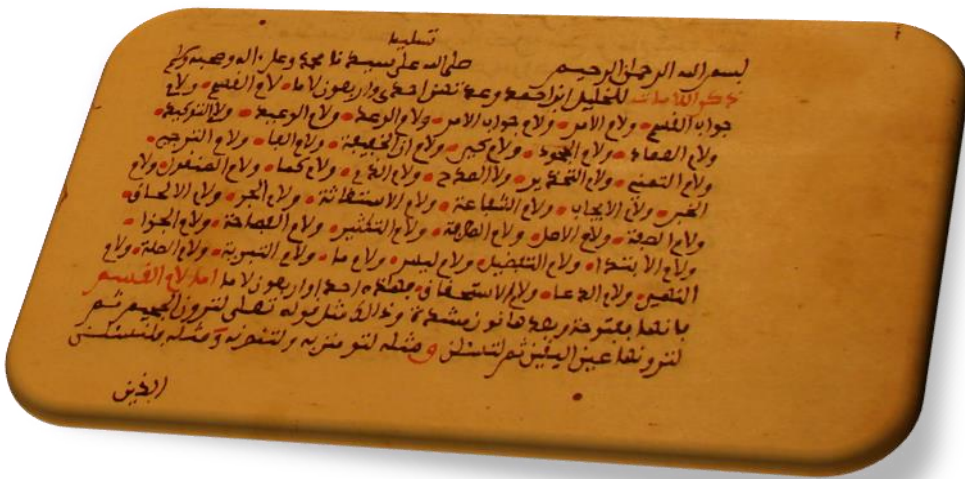 تسليما
بسم الله الرحمن الرحيم صلى الله على سيدنا محمد وعلى اله وصحبه وسلم
ذكر اللامات للخليل ابن احمد وعدتهن احدى واربعون لاما لام القسم ولام
جواب القسم ولام الامر ولام جواب الامر ولام الوعد ولام الوعيد ولام التوكيد
ولام العماد ولام الجحود ولام كي ولام ان الخفيفة ولام ولام الترجي
ولام التمني ولام التحذير ولام المدح ولام الذم ولام كما ولام المنقول ولام
الخبر ولام الايجاب ولام الشفاعة ولام الاستغاثة ولام الجر ولام الالحاق
ولام الصفة ولام الاصل ولام ولام التكثير ولام الفصاحة ولام الجزا
ولام الابتدا ولام التفضيل ولام ليس ولام ما ولام التبرية ولام الصلة ولام
التلهين ولام الدعا ولام الاستحقاق فهذه احدا واربعون لاما اما لام القسم
فانها مفتوحة وبعدها نون مشددة وذالك مثل قوله تعلى لترون الجحيم ثم
لترونها عين اليقين ثم لتسئلن ومثله لتومنن به ولتنصرنه ومثله فلنسئلن
الذين